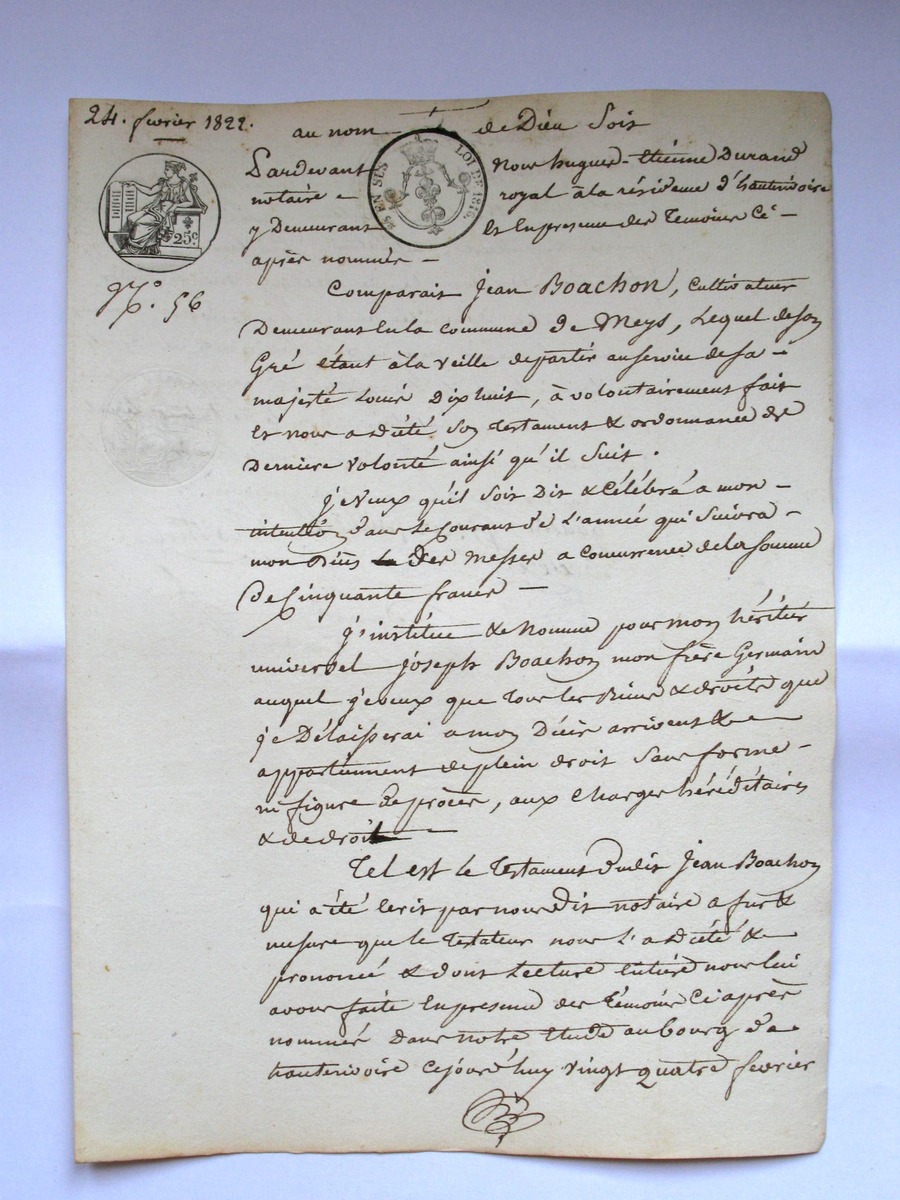 24. fevrier 1822.
au nom de Dieu Soit
Pardevant Nous hugues-Etienne Durand
notaire royal à la résidence d'hauterivoire
y Demeurant Et En presence des Temoins Ci-
après nommés
25c
EN SUS
LOI DE 1816.
N.o 56
Comparait Jean Boachon, Cultivateur
Demeurant En la commune de Meys, Lequel de son
Gré étant à la veille de partir au service de sa
majesté Louis Dixhuit, à volontairement fait
Et nous a dicté Son Testament & ordonnance de
Derniere volonté ainsi qu'il Suit.
je Veux qu'il Soit Dit & Célébré a mon
intention dans le Courant de L'année qui Suivra
mon Décès Des Messes a Concurrence de la Somme
De Cinquante francs
j'institue & Nomme pour mon héritier
universel joseph Boachon mon frère Germain
auquel je veux que Tous les Biens & droits que
je Délaisserai a mon Décès arrivent &
appartiennent de plein droit Sans forme
ni figure de procès, aux Charges héréditaires
& de droit
Tel est le Testament dudit Jean Boachon
qui a été Ecrit par nous dit notaire a fur &
mesure que le Testateur nous L'a dicté &
prononcé & dont Lecture Entière nous lui
avons faite En presence des Témoins Ci après
nommés Dans notre Etude au bourg d'
hauterivoire Cejourd'huy vingt quatre fevrier